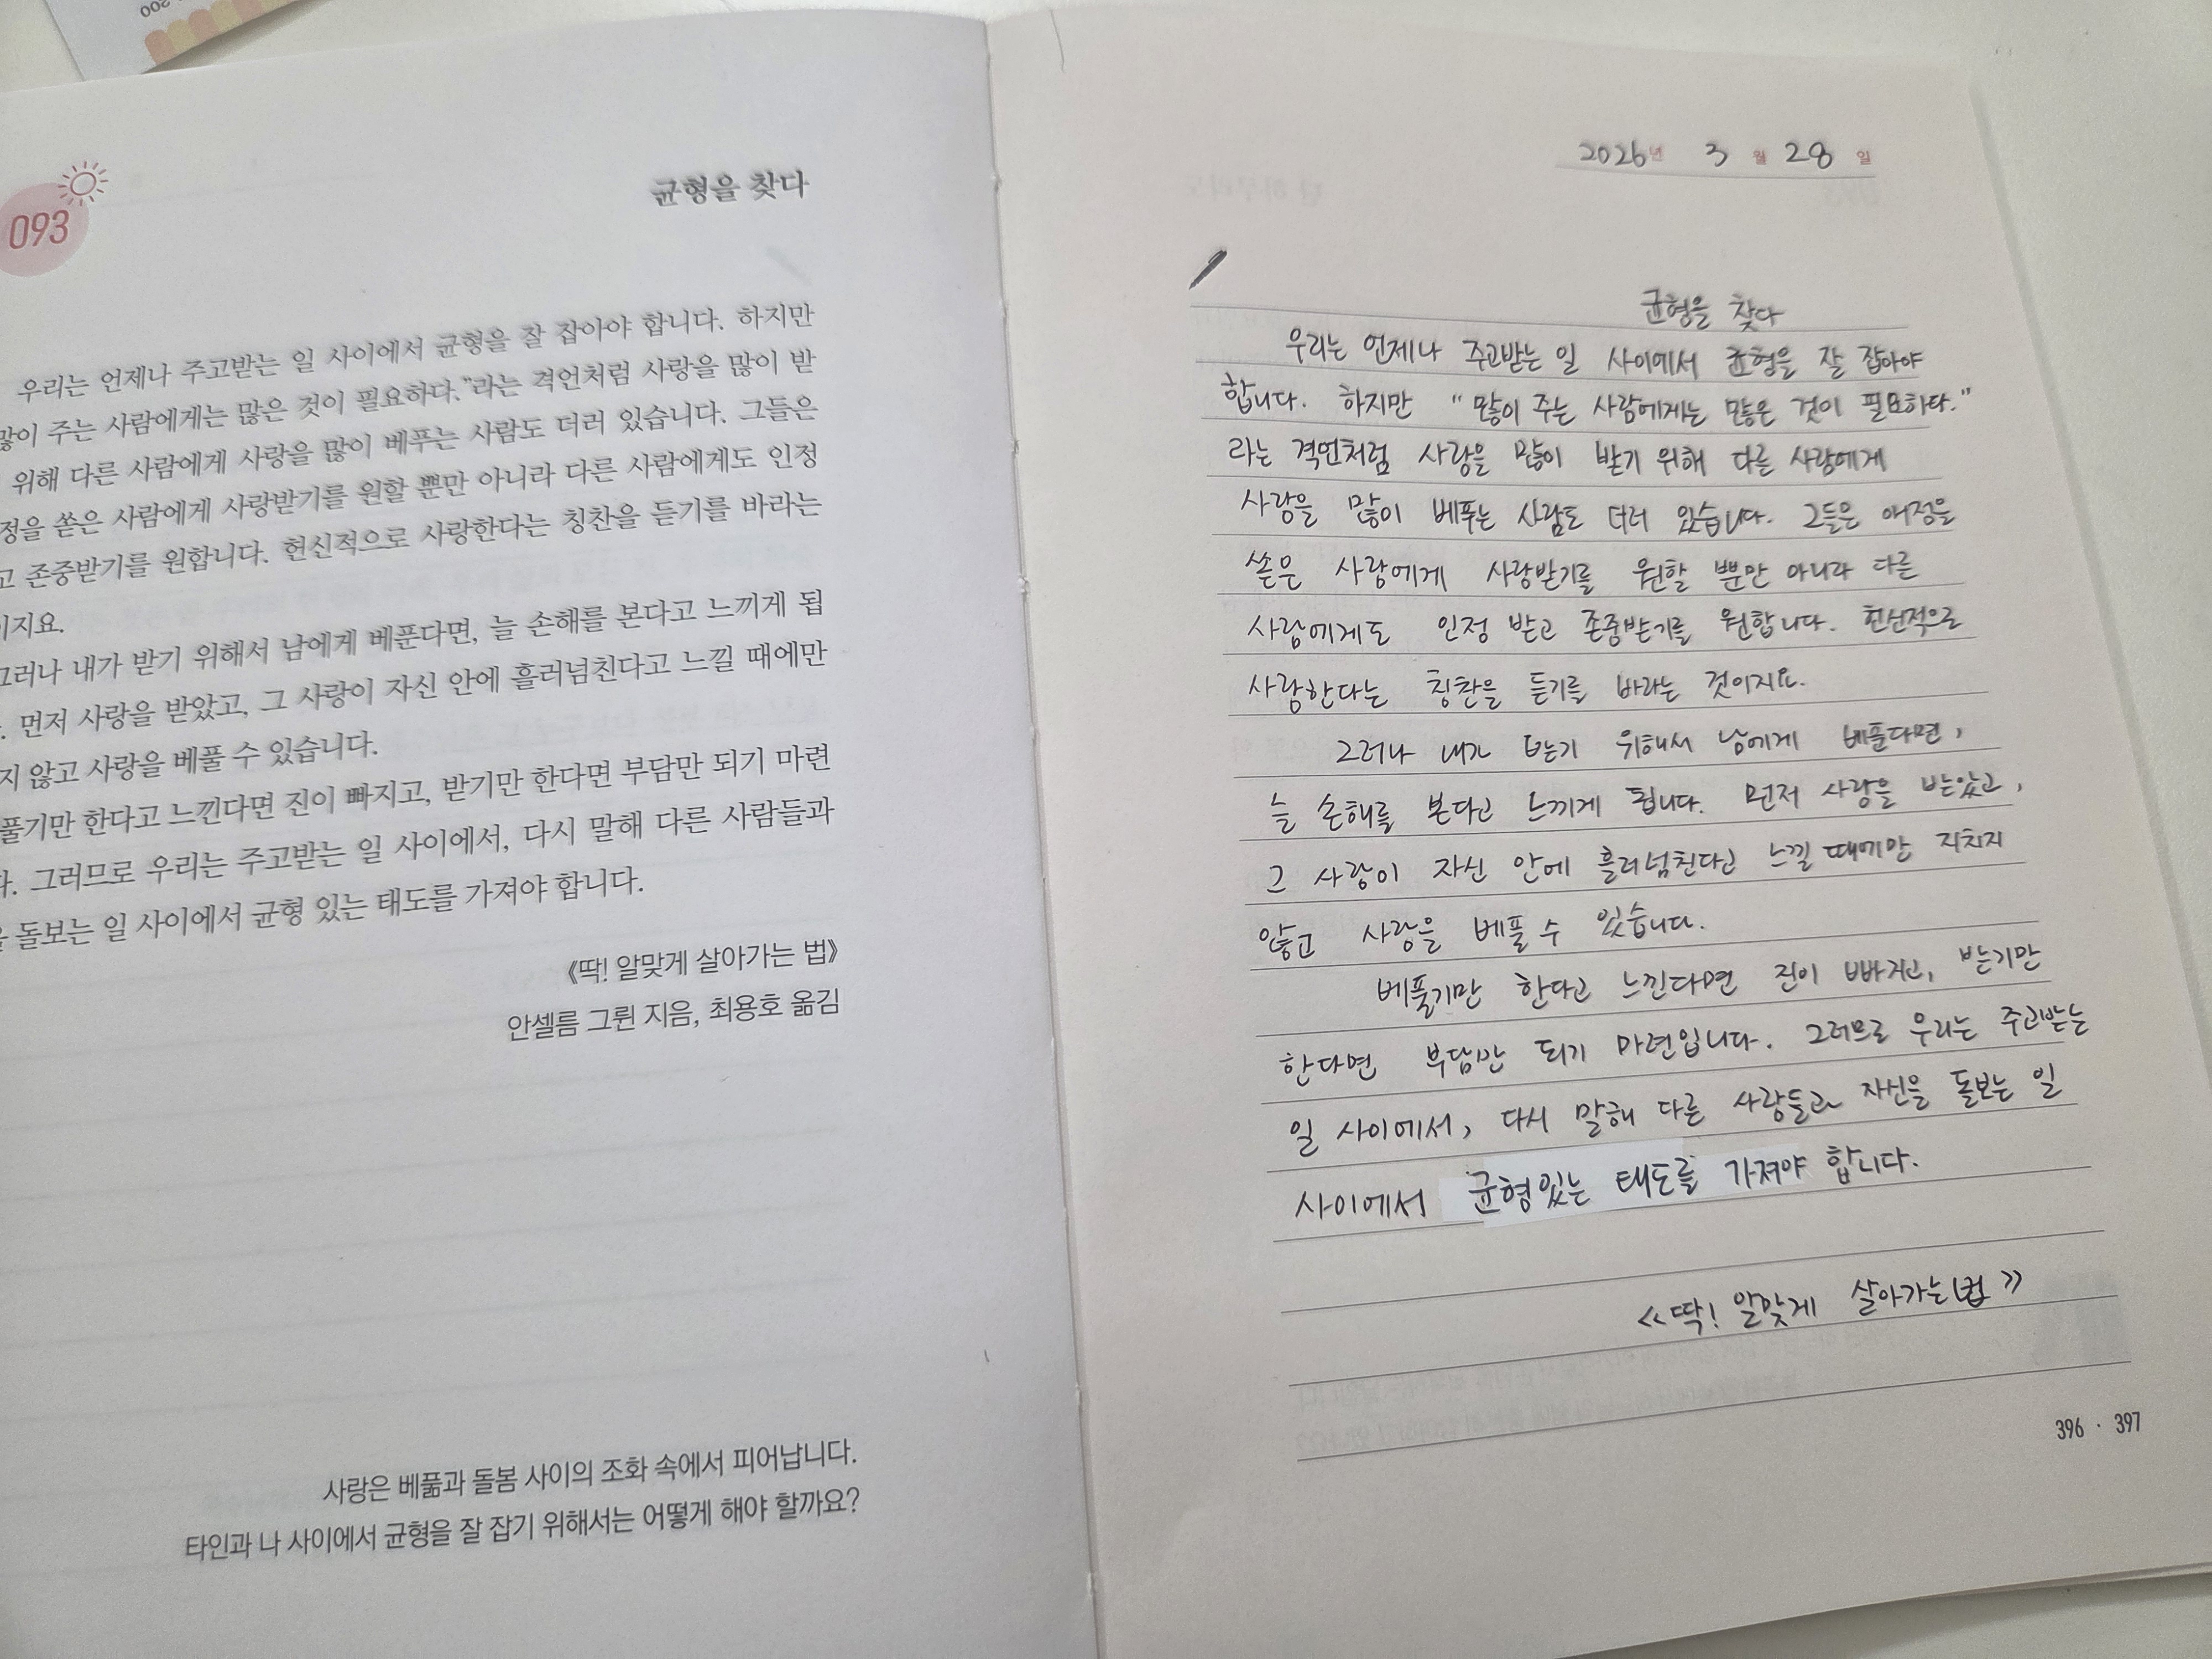 093
균형을 찾다
우리는 언제나 주고받는 일 사이에서 균형을 잘 잡아야 합니다. 하지만
많이 주는 사람에게는 많은 것이 필요하다."라는 격언처럼 사랑을 많이 받
위해 다른 사람에게 사랑을 많이 베푸는 사람도 더러 있습니다. 그들은
정을 쏟은 사람에게 사랑받기를 원할 뿐만 아니라 다른 사람에게도 인정
고 존중받기를 원합니다. 헌신적으로 사랑한다는 칭찬을 듣기를 바라는
이지요.
그러나 내가 받기 위해서 남에게 베푼다면, 늘 손해를 본다고 느끼게 됩
. 먼저 사랑을 받았고, 그 사랑이 자신 안에 흘러넘친다고 느낄 때에만
지 않고 사랑을 베풀 수 있습니다.
풀기만 한다고 느낀다면 진이 빠지고, 받기만 한다면 부담만 되기 마련
다. 그러므로 우리는 주고받는 일 사이에서, 다시 말해 다른 사람들과
을 돌보는 일 사이에서 균형 있는 태도를 가져야 합니다.
《딱! 알맞게 살아가는 법》
안셀름 그륀 지음, 최용호 옮김
사랑은 베풂과 돌봄 사이의 조화 속에서 피어납니다.
타인과 나 사이에서 균형을 잘 잡기 위해서는 어떻게 해야 할까요?
2026년 3월 28일
균형을 찾다
우리는 언제나 주고받는 일 사이에서 균형을 잘 잡아야
합니다. 하지만 "많이 주는 사람에게는 많은 것이 필요하다."
라는 격언처럼 사랑을 많이 받기 위해 다른 사람에게
사랑을 많이 베푸는 사람도 더러 있습니다. 그들은 애정을
쏟은 사람에게 사랑받기를 원할 뿐만 아니라 다른
사람에게도 인정 받고 존중받기를 원합니다. 헌신적으로
사랑한다는 칭찬을 듣기를 바라는 것이지요.
그러나 내가 받기 위해서 남에게 베푼다면,
늘 손해를 본다고 느끼게 됩니다. 먼저 사랑을 받았고,
그 사랑이 자신 안에 흘러넘친다고 느낄 때에만 지치지
않고 사랑을 베풀 수 있습니다.
베풀기만 한다고 느낀다면 진이 빠지고, 받기만
한다면 부담만 되기 마련입니다. 그러므로 우리는 주고받는
일 사이에서, 다시 말해 다른 사람들과 자신을 돌보는 일
사이에서 균형있는 태도를 가져야 합니다.
《딱! 알맞게 살아가는 법》
396 · 397